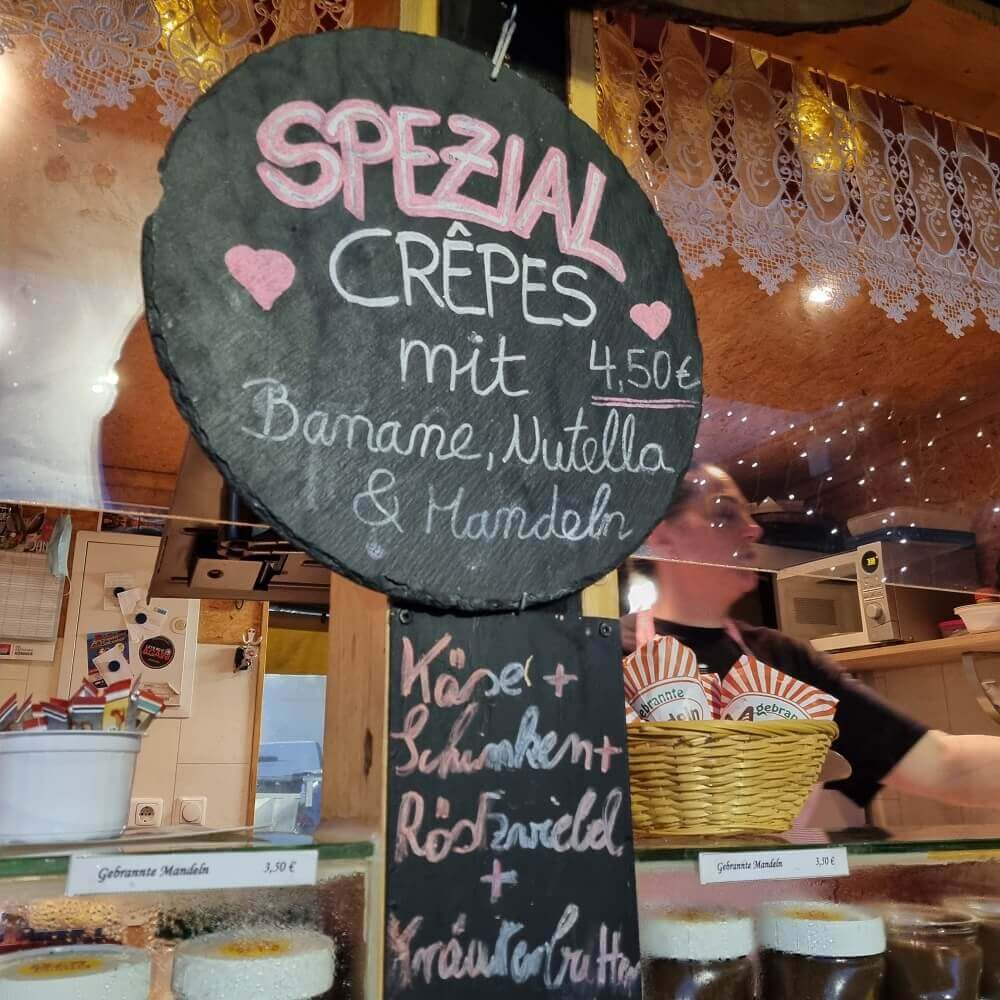 SPEZIAL
CRÊPES
mit 4,50€
Banane, Nutella
& Mandeln
Käse +
Schinken +
Röstzwiebel
+
Kräuterbutter
gebrannte
gebran
Gebrannte Mandeln 3,50 €
Gebrannte Mandeln 3,50 €